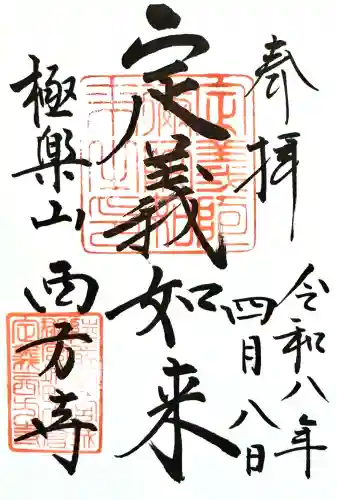 奉拝
令和八年
四月八日
定義如来
極楽山
西方寺